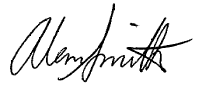 Alan Smith